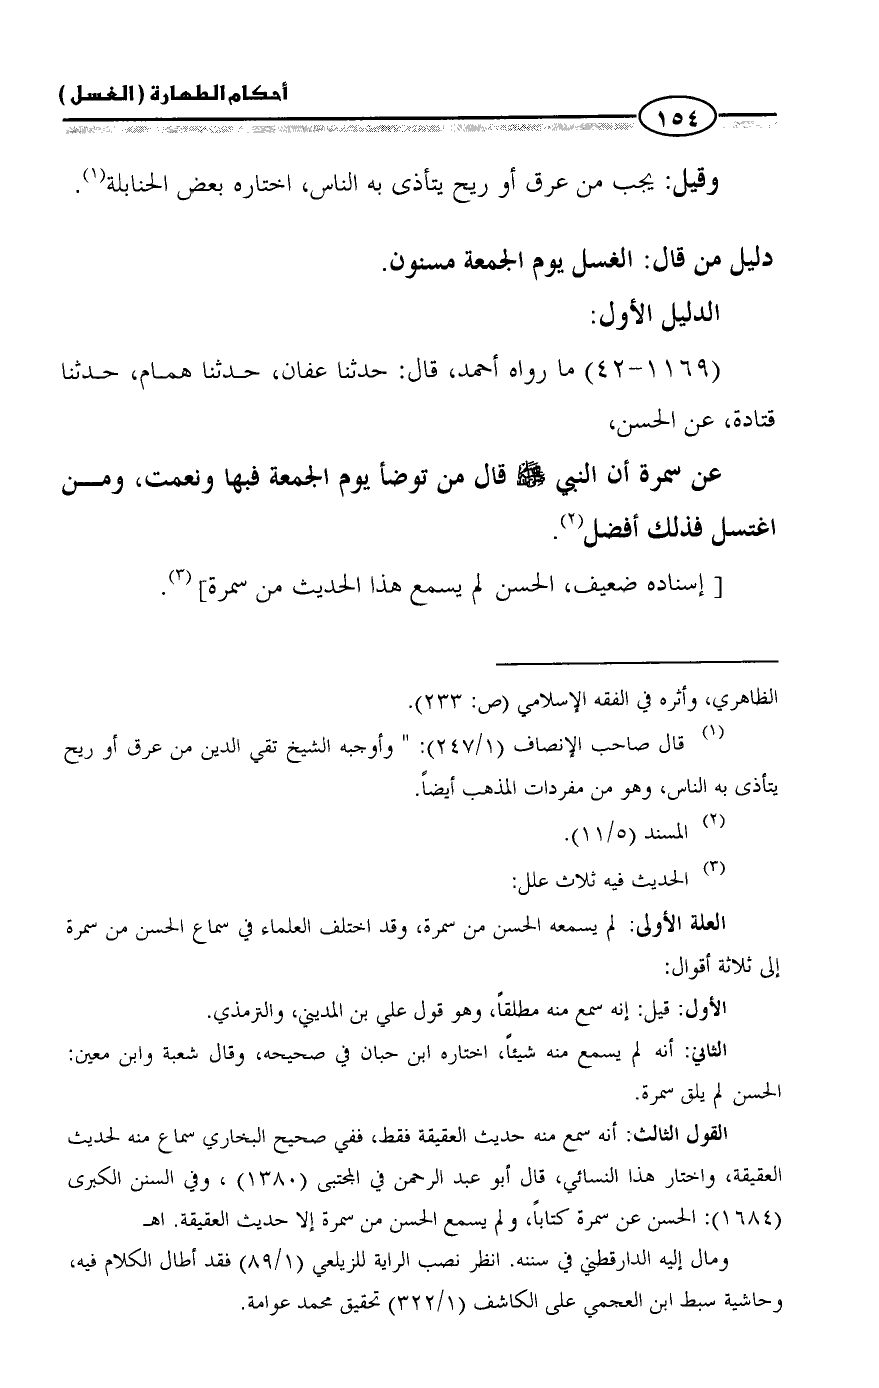 أحكام الطهارة (الغسل)
١٥٤
وقيل: يجب من عرق أو ريح يتأذى به الناس، اختاره بعض الحنابلة(١).
دليل من قال: الغسل يوم الجمعة مسنون.
الدليل الأول:
(١١٦٩-٤٢) ما رواه أحمد، قال: حدثنا عفان، حدثنا همام، حدثنا
قتادة، عن الحسن،
عن سمرة أن النبي ﷺ قال من توضأ يوم الجمعة فبها ونعمت، ومن
اغتسل فذلك أفضل(٢).
[ إسناده ضعيف، الحسن لم يسمع هذا الحديث من سمرة] (٣).
الظاهري، وأثره في الفقه الإسلامي (ص: ٢٣٣).
(١) قال صاحب الإنصاف (٢٤٧/١): " وأوجبه الشيخ تقي الدين من عرق أو ريح
يتأذى به الناس، وهو من مفردات المذهب أيضاً.
(٢) المسند (١١/٥).
(٣) الحديث فيه ثلاث علل:
العلة الأولى: لم يسمعه الحسن من سمرة، وقد اختلف العلماء في سماع الحسن من سمرة
إلى ثلاثة أقوال:
الأول: قيل: إنه سمع منه مطلقاً، وهو قول علي بن المديني، والترمذي.
الثاني: أنه لم يسمع منه شيئاً، اختاره ابن حبان في صحيحه، وقال شعبة وابن معين:
الحسن لم يلق سمرة.
القول الثالث: أنه سمع منه حديث العقيقة فقط، ففي صحيح البخاري سماع منه لحديث
العقيقة، واختار هذا النسائي، قال أبو عبد الرحمن في المجتبى (١٣٨٠) ، وفي السنن الكبرى
(١٦٨٤): الحسن عن سمرة كتاباً، ولم يسمع الحسن من سمرة إلا حديث العقيقة. اهـ
ومال إليه الدارقطني في سننه. انظر نصب الراية للزيلعي (٨٩/١) فقد أطال الكلام فيه،
وحاشية سبط ابن العجمي على الكاشف (٣٢٢/١) تحقيق محمد عوامة.